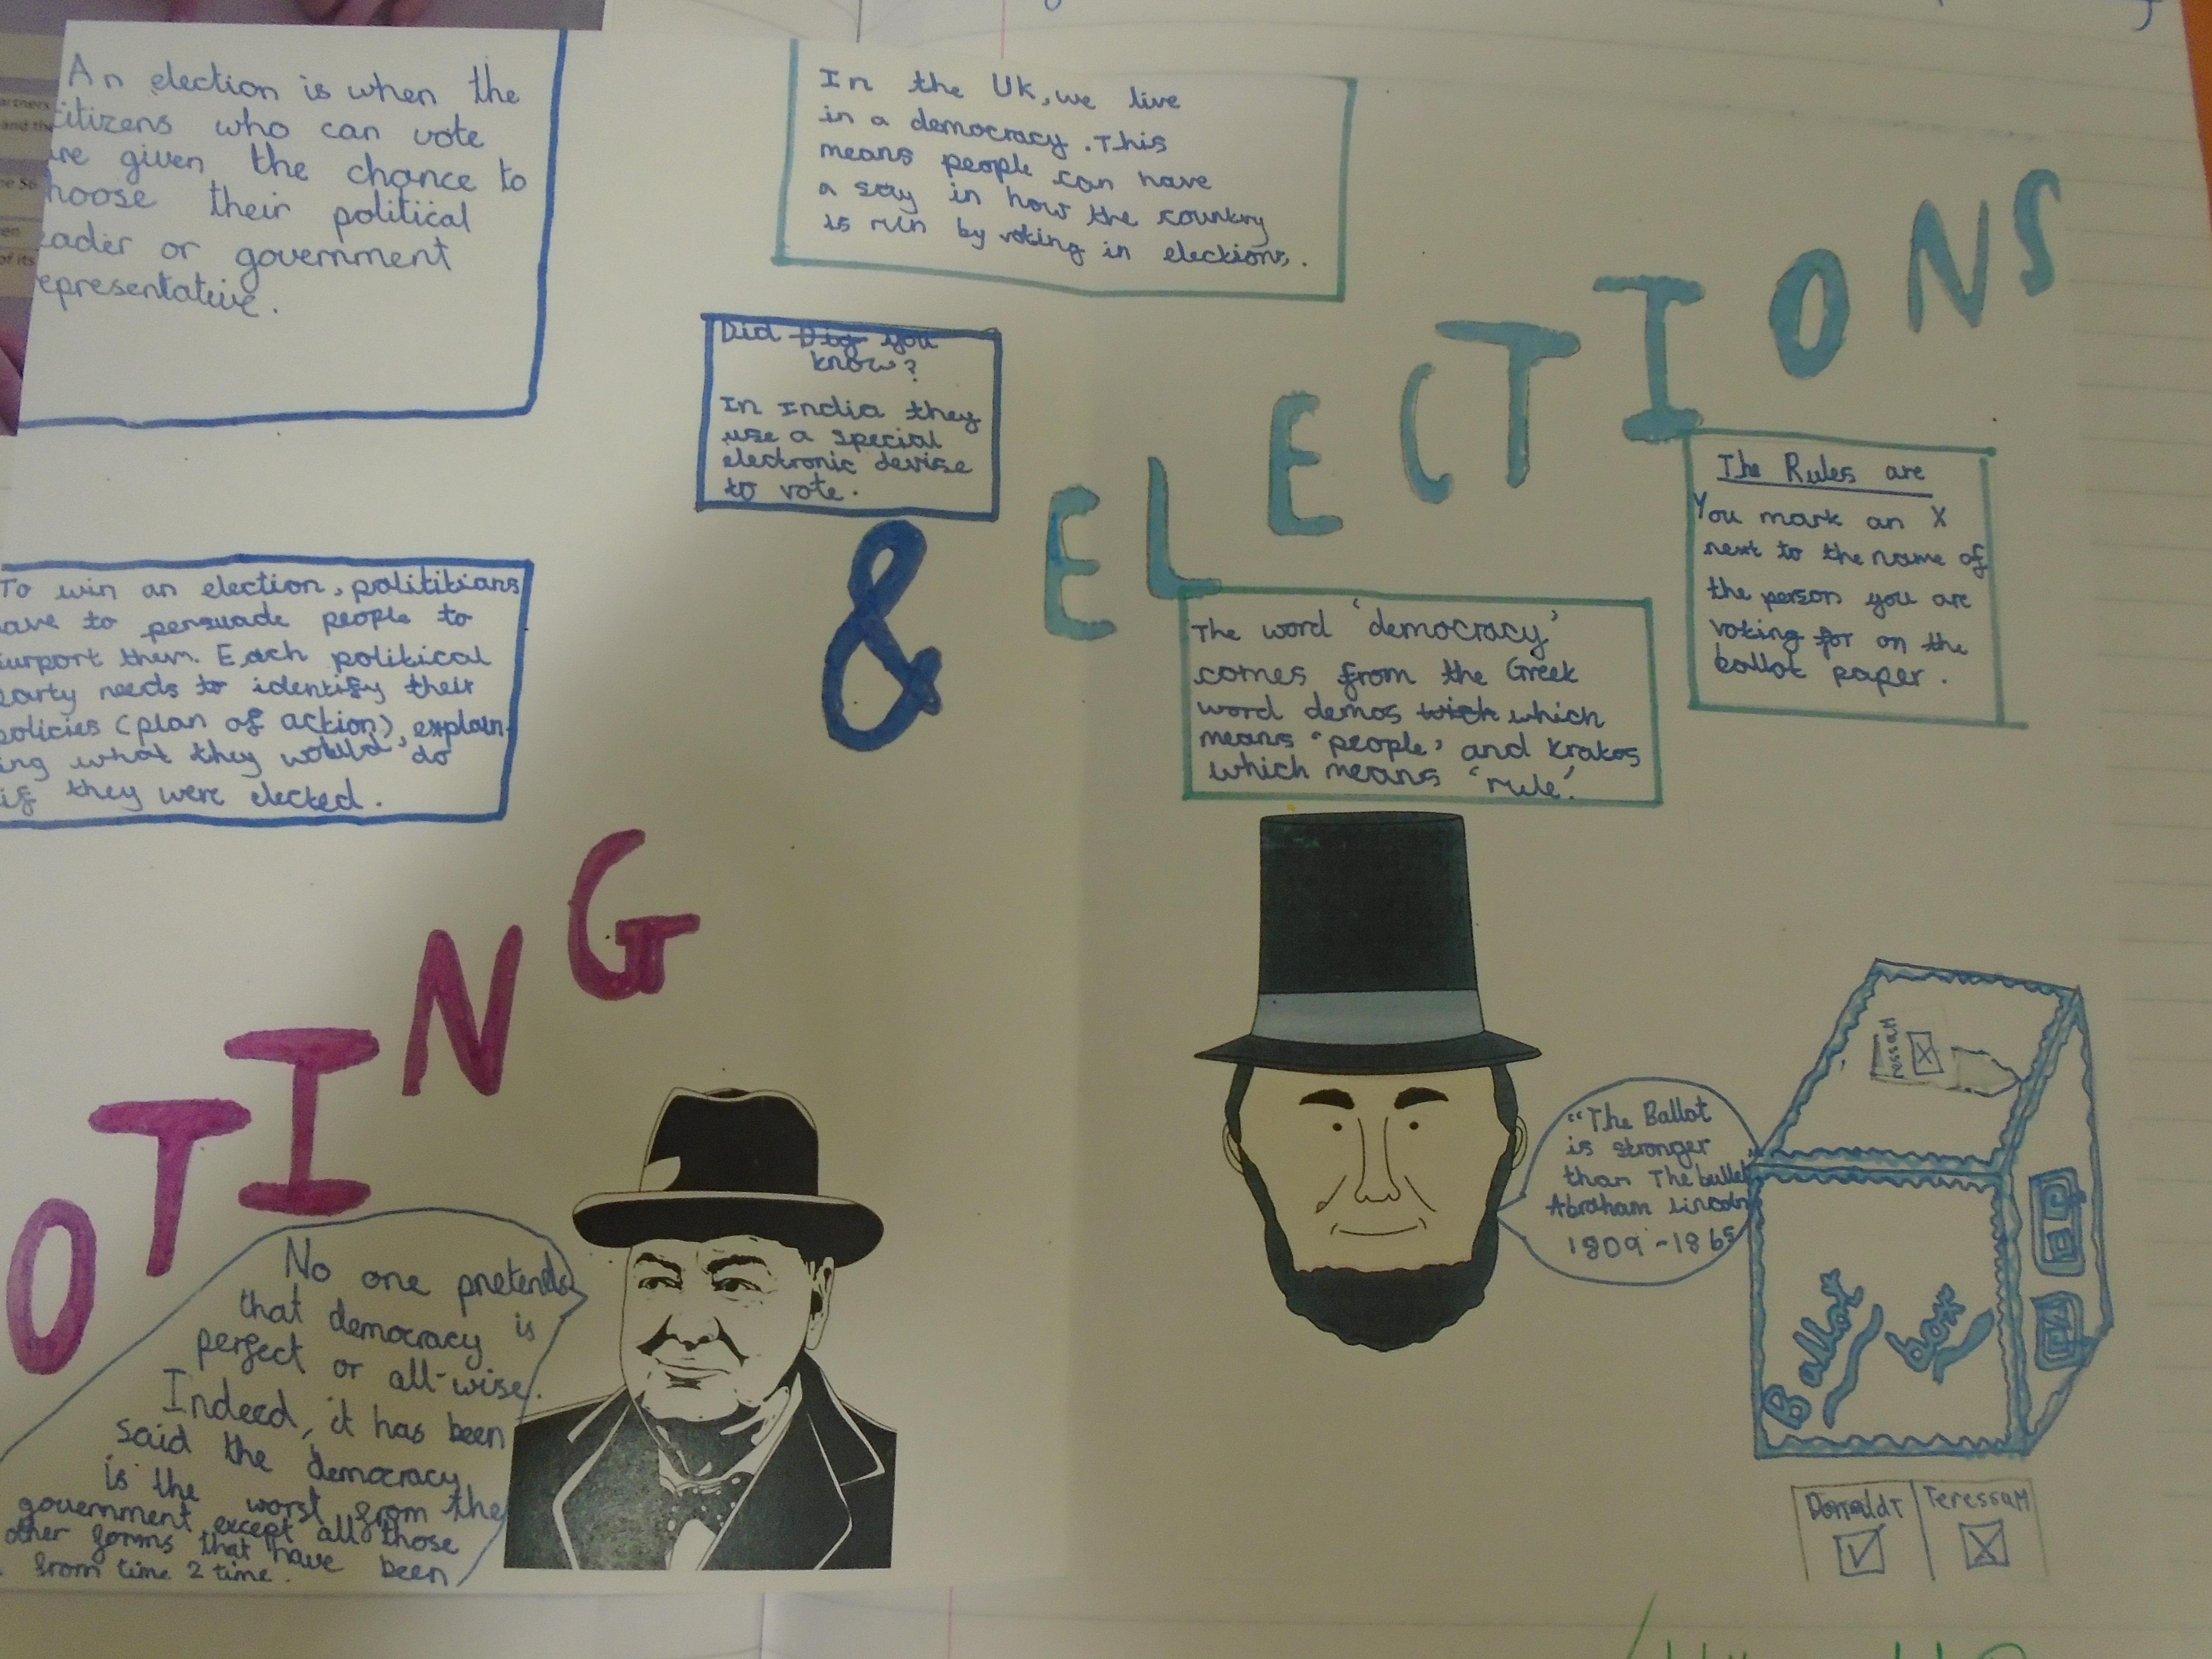 An election is when the
citizens who can vote
are given the chance to
hoose their political
eader or government
epresentative.
In the UK, we live
in a democracy. This
means people can have
a say in how the country
is run by voting in elections.
Did Dig you
know?
In India they
use a special
electronic devise
to vote.
To win an election, polititians
ave to persuade people to
surport them. Each political
party needs to identify their
policies (plan of action), explain-
ing what they would do
if they were elected.
OTING
&
ELECTIONS
The Rules are
You mark an X
next to the name of
the person you are
voting for on the
ballot paper.
The word 'democracy'
comes from the Greek
word demos wich which
means 'people' and Kratos
which means 'rule'.
No one pretends
that democracy is
perfect or all-wise.
Indeed, it has been
said the democracy
is the worst from the
government except all those
other forms that have been
from time 2 time.
"The Ballot
is stronger
than The bullet"
Abraham Lincoln
1809-1865
TeressaM
Ballot
box
DonaldT
TeressaM